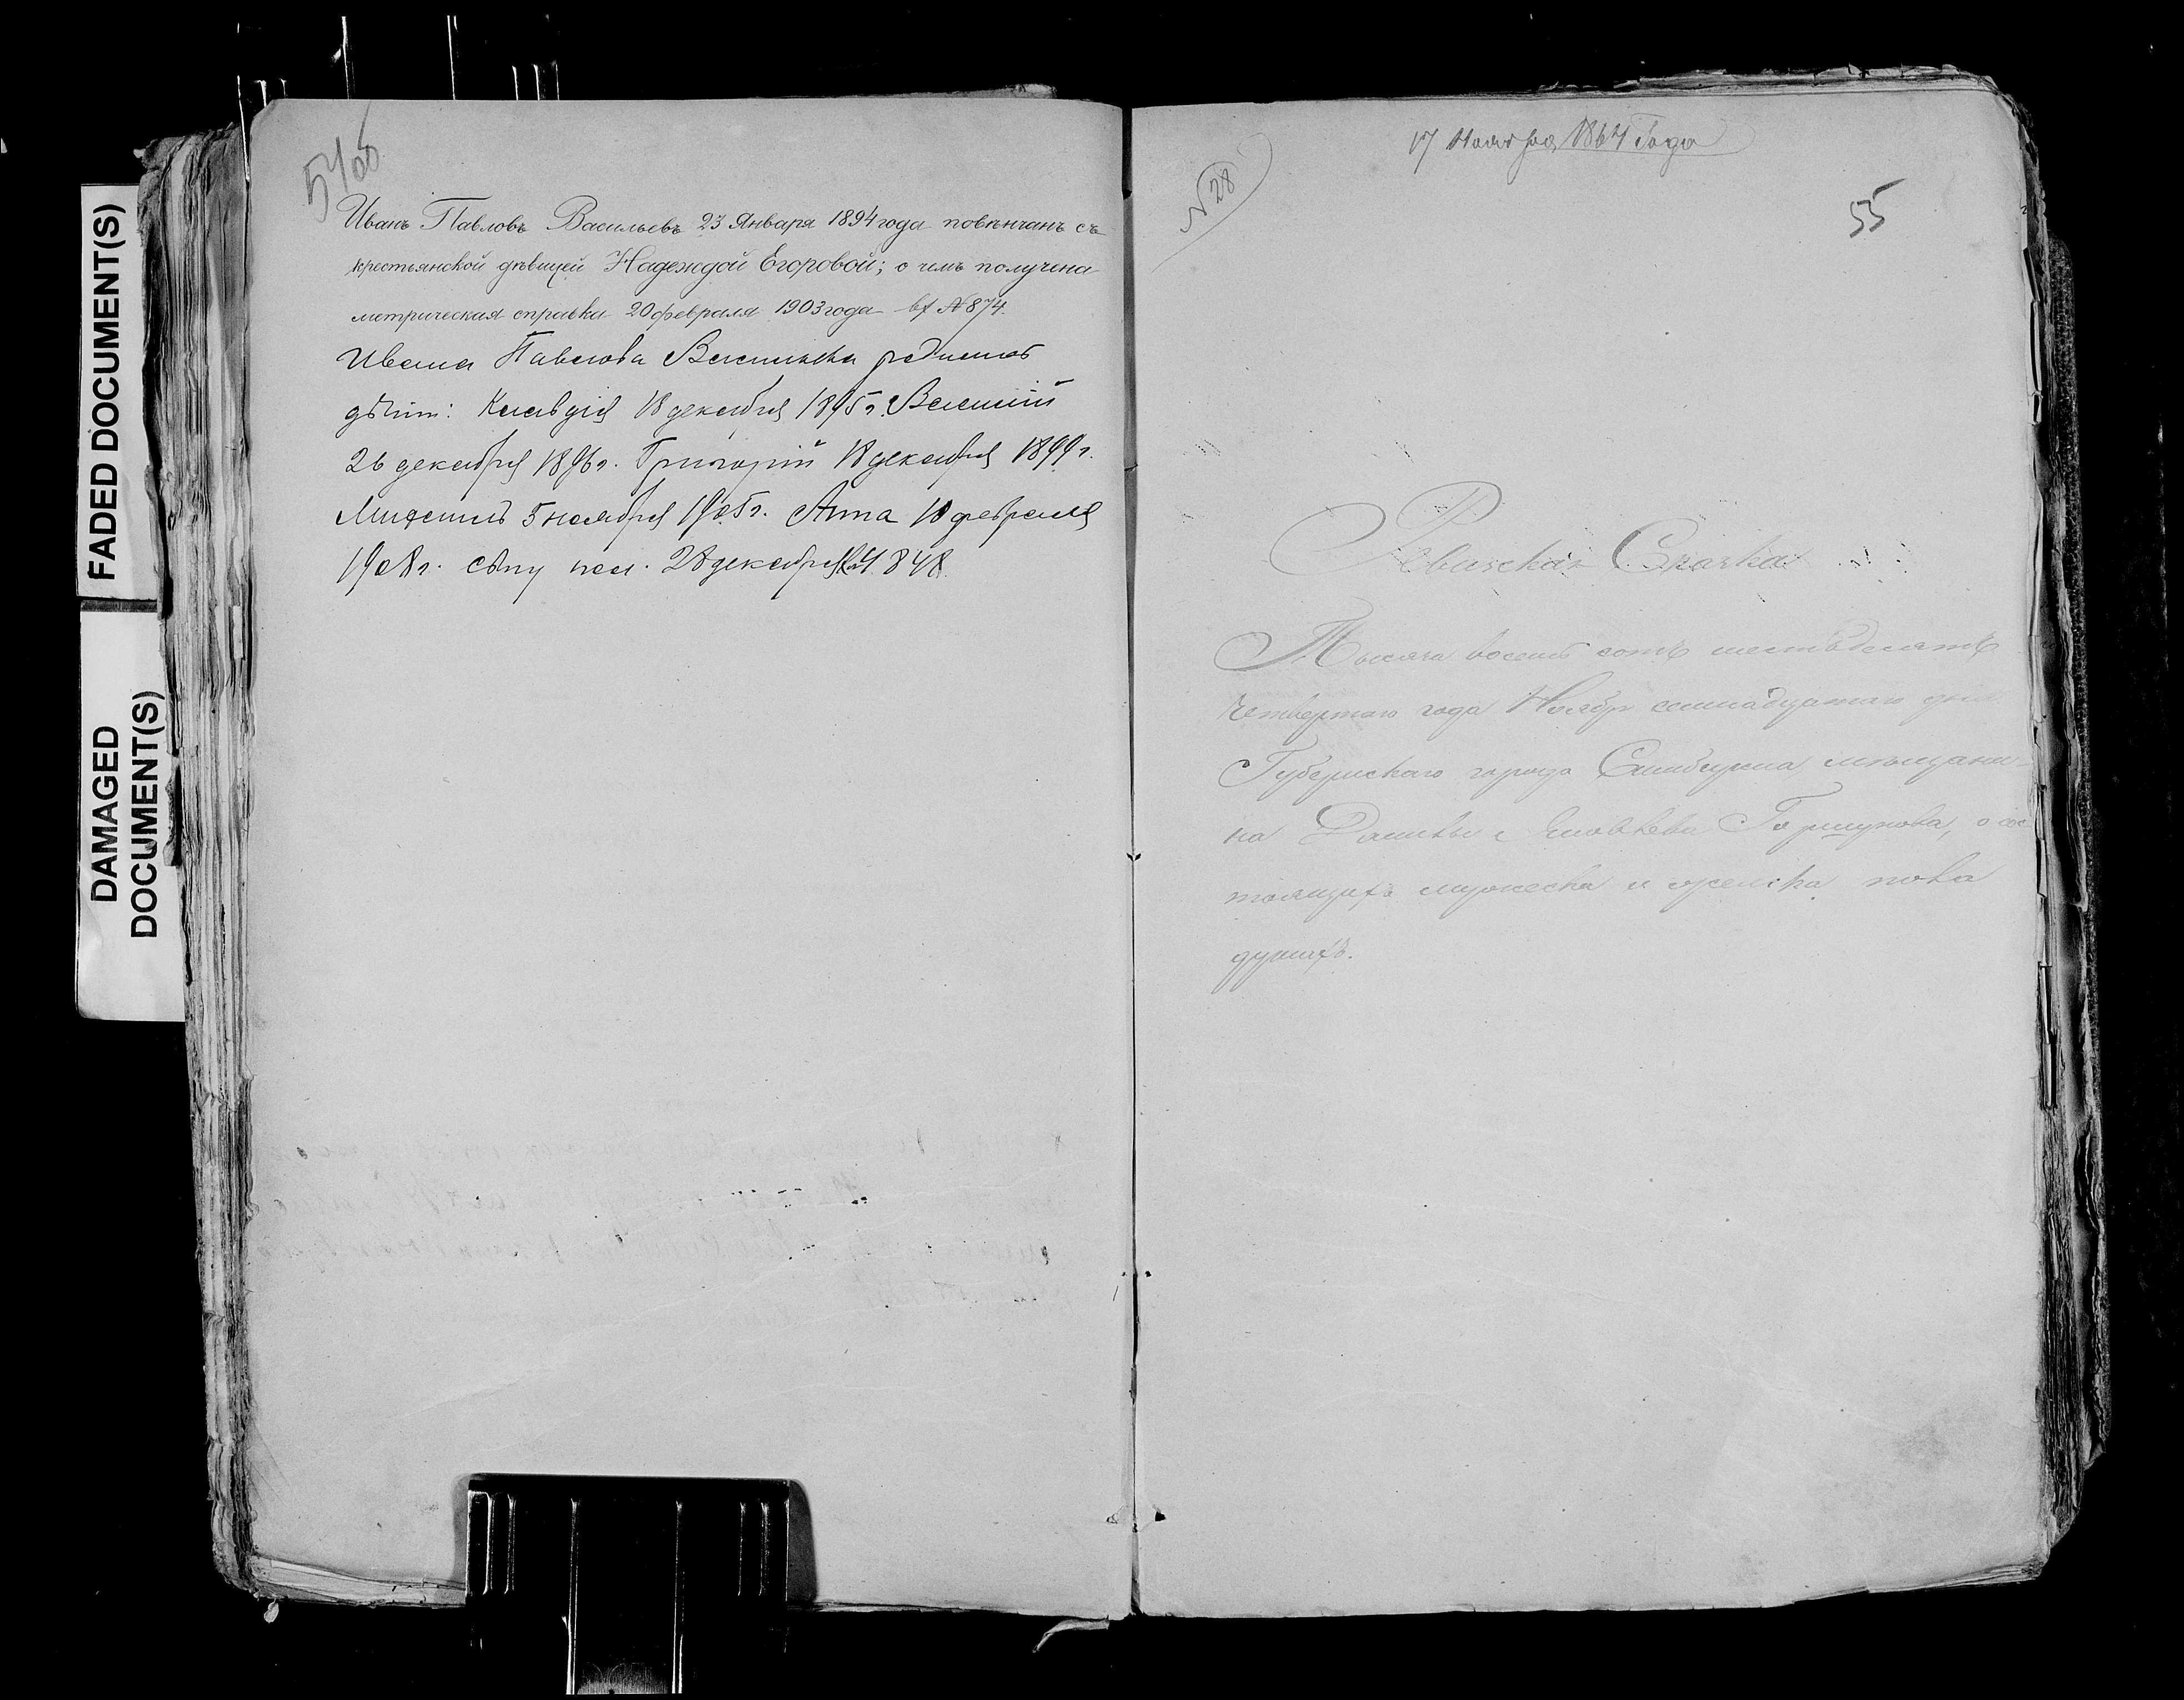 FADED DOCUMENT(S)
DAMAGED
DOCUMENT(S)
54об
Иванъ Павловъ Васильевъ 23 Января 1894 года повѣнчанъ съ
крестьянской дѣвицей Надеждой Егоровой; о чемъ получена
метрическая справка 20 февраля 1903 года №874.
Ивана Павлова Васильева
дѣти: Клавдія 18 декабря 1895 г. Василій
26 декабря 1896 г. Григорій 18 декабря 1899 г.
Михаилъ 5 ноября 1905 г. Анна 10 февраля
1908 г. 28 декабря 848
17 Ноября 1864 Года
№ 28
55
Ревизская Сказка
Тысяча восемь сотъ шестьдесятъ
четвертаго года Ноября семнадцатаго дня
Губернскаго города Симбирска мѣщани-
на Данилы Яковлева Горшунова, о сос
тоящихъ мужеска и женска пола
душахъ.